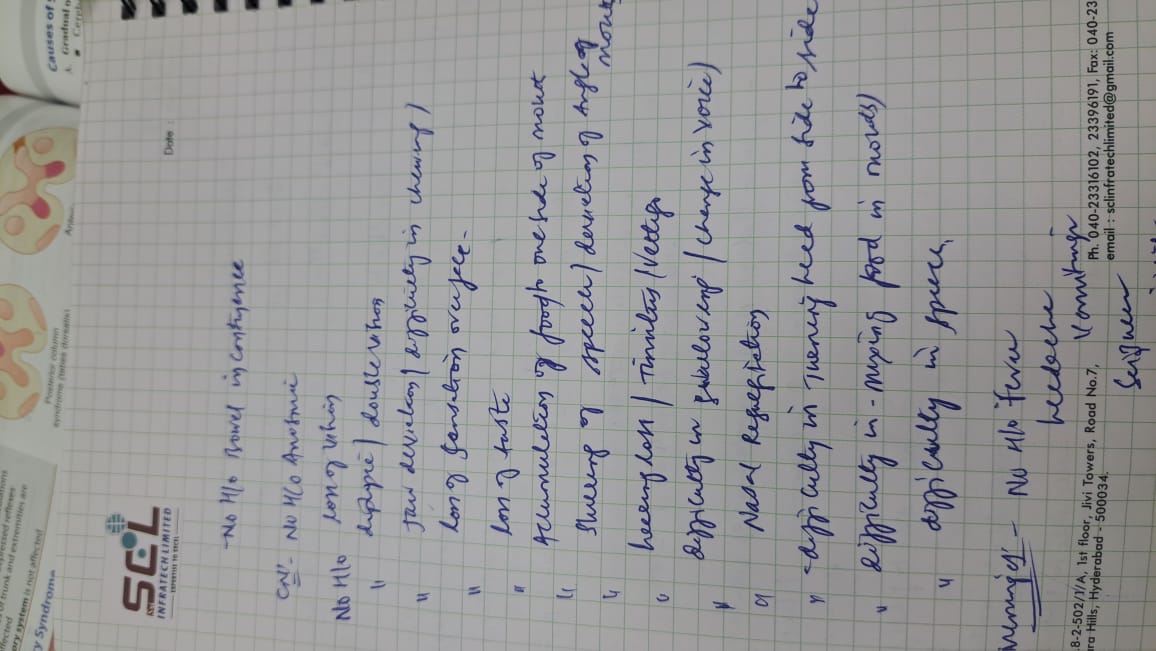 Causes of
A. Gradual o
Posterior column
syndrome (tabes dorsalis)
of trunk and extremities are
ory system is not affected
y Syndrome
SCL
INFRATECH LIMITED
Date :
- No H/o Bowel incontinence
CN - No H/o Anosmia
No H/o loss of vision
" diplopia / double vision
" jaw deviation / difficulty in chewing /
" loss of sensation over face -
" loss of taste
" Accumulation of food to one side of mouth
" Slurring of speech / deviation of angle of mouth
" hearing loss / Tinnitus / Vertigo
" difficulty in / change in voice)
" Nasal Regurgitation
" - difficulty in Turning head from side to side
" difficulty in - mixing food in mouth)
" difficulty in speech
- No H/o fever
headache
Vomitings
8-2-502/1/A, 1st floor, Jivi Towers, Road No.7,
ra Hills, Hyderabad - 500034.
Ph. 040-23316102, 23396191, Fax: 040-23
email : sclinfratechlimited@gmail.com